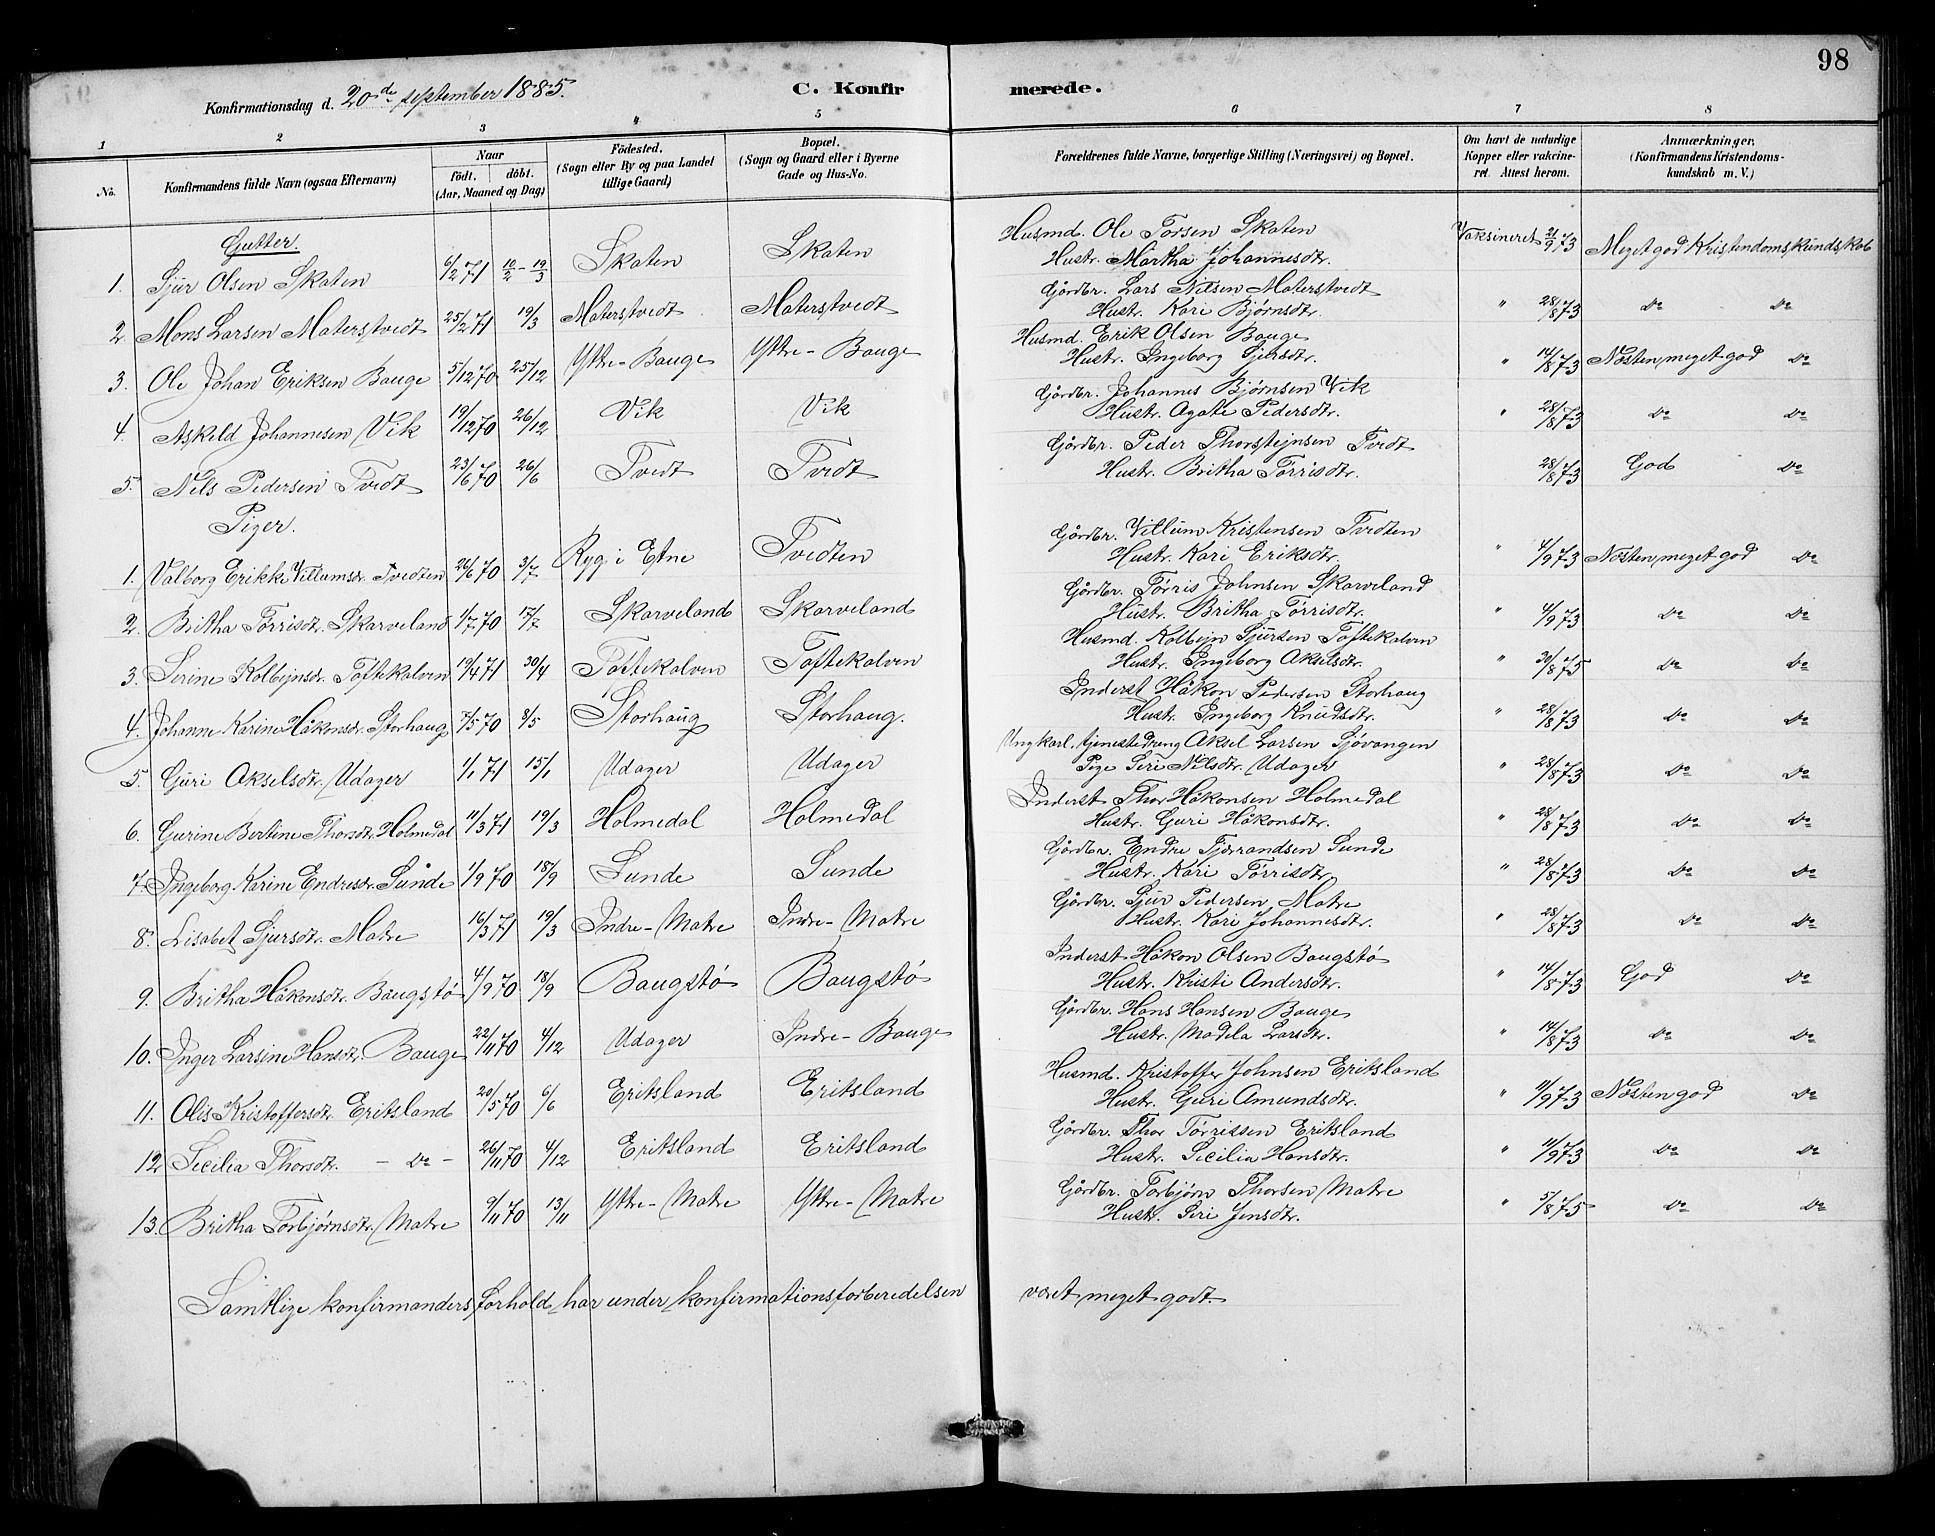 98
Konfirmationsdag d. 20de september 1885. C. Konfirmerede.
1 2 3 4 5 6 7 8
No. Konfirmandens fulde Navn (ogsaa Efternavn) Naar født. døbt. (Aar, Maaned og Dag) Födested. (Sogn eller By og paa Landet tillige Gaard) Bopæl. (Sogn og Gaard eller i Byerne Gade og Hus-No. Forældrenes fulde Navne, borgerlige Stilling (Næringsvei) og Bopæl. Om havt de naturlige Kopper eller vakcineret. Attest herom. Anmærkninger. (Konfirmandens Kristendomskundskab m. V.)
Gutter.
1. Sjur Olsen Skaten 6/2 71 10/2 - 19/3 Skaten Skaten Husmd. Ole Torsen Skaten Hustr. Martha Johannesdtr. Vaksineret 21/9 73 Meget god Kristendomskundskab
2. Mons Larsen Materstvedt 25/2 71 19/3 Materstvedt Materstvedt Gårdbr. Lars Nilsen Materstvedt Hustr. Kari Bjørnsdtr. " 28/8 73 do do
3. Ole Johan Eriksen Bauge 5/12 70 25/12 Yttre-Bauge Yttre-Bauge Husmd. Erik Olsen Bauge Hustr. Ingeborg Jensdtr. " 14/8 73 Næsten meget god do
4. Askild Johannesen Vik 19/12 70 26/12 Vik Vik Gårdbr. Johannes Bjørnsen Vik Hustr. Agate Pedersdtr. " 28/8 73 do do
5. Nils Pedersen Tvedt 23/6 70 26/6 Tvedt Tvedt Gårdbr. Peder Thorstejnsen Tvedt Hustr. Britha Tørrisdtr. 28/8 73 God do
Piger.
1. Valborg Erikke Villumsdr. Tvedten 26/6 70 3/7 Ryg i Etne Tvedten Gårdbr. Villum Kristensen Tvedten Hustr. Kari Eriksdtr. " 4/9 73 Næsten meget god do
2. Britha Tørrisdtr. Skarveland 1/7 70 17/7 Skarveland Skarveland Gårdbr. Tørris Johnsen Skarveland Hustr. Britha Tørrisdtr. " 4/9 73 do do
3. Serine Kolbejnsdr. Toftekalven 19/4 71 30/4 Toftekalven Toftekalven Husmd. Kolbejn Sjursen Toftekalven Hustr. Ingeborg Akselsdtr. " 30/8 75 do do
4. Johanne Karine Håkonsdr. Storhaug 5/5 70 8/5 Storhaug Storhaug. Inderst Håkon Pedersen Storhaug Hustr. Ingeborg Knudsdtr. " 28/8 73 do do
5. Guri Akselsdtr. Udager 1/1 71 15/1 Udager Udager Ungkarl, tjenestedreng Aksel Larsen Sjøvangen Pige Siri Nilsdtr. Udager " 28/8 73 do do
6. Gurine Bertine Thorsdtr. Holmedal 11/3 71 19/3 Holmedal Holmedal Inderst Thor Håkonsen Holmedal Hustr. Guri Håkonsdtr. " 28/8 73 do do
7. Ingeborg Karine Endresdr. Sunde 1/9 70 18/9 Sunde Sunde Gårdbr. Endre Tjerrandsen Sunde Hustr. Kari Tørrisdtr. " 28/8 73 do do
8. Lisabet Sjursdtr. Matre 16/3 71 19/3 Indre-Matre Indre-Matre Gårdbr. Sjur Pedersen Matre Hustr. Kari Johannesdtr. " 28/8 73 do do
9. Britha Håkonsdtr. Baugstø 4/9 70 18/9 Baugstø Baugstø Inderst Håkon Olsen Baugstø Hustr. Kristi Andersdtr. " 14/8 73 God do
10. Inger Larsine Hansdtr. Bauge 22/11 70 4/12 Udager Indre-Bauge Gårdbr. Hans Hansen Bauge Hustr. Madela Larsdtr. " 14/8 73 do do
11. Olis Kristoffersdtr. Eritsland 20/5 70 6/6 Eritsland Eritsland Husmd. Kristoffer Johnsen Eritsland Hustr. Guri Amundsdtr. " 11/9 73 Næsten god do
12 Sicilia Thorsdtr. - do - 26/11 70 4/12 Eritsland Eritsland Gårdbr. Thor Tørrissen Eritsland Hustr. Sicilia Hansdtr. " 11/9 73 do do
13. Britha Torbjørnsdtr. Matre 9/11 70 13/11 Yttre-Matre Yttre-Matre Gårdbr. Torbjørn Thorsen Matre Hustr. Siri Jensdtr. " 5/8 75 do do
Samtlige konfirmanders forhold har under konfirmationsforberedelsen været meget godt.